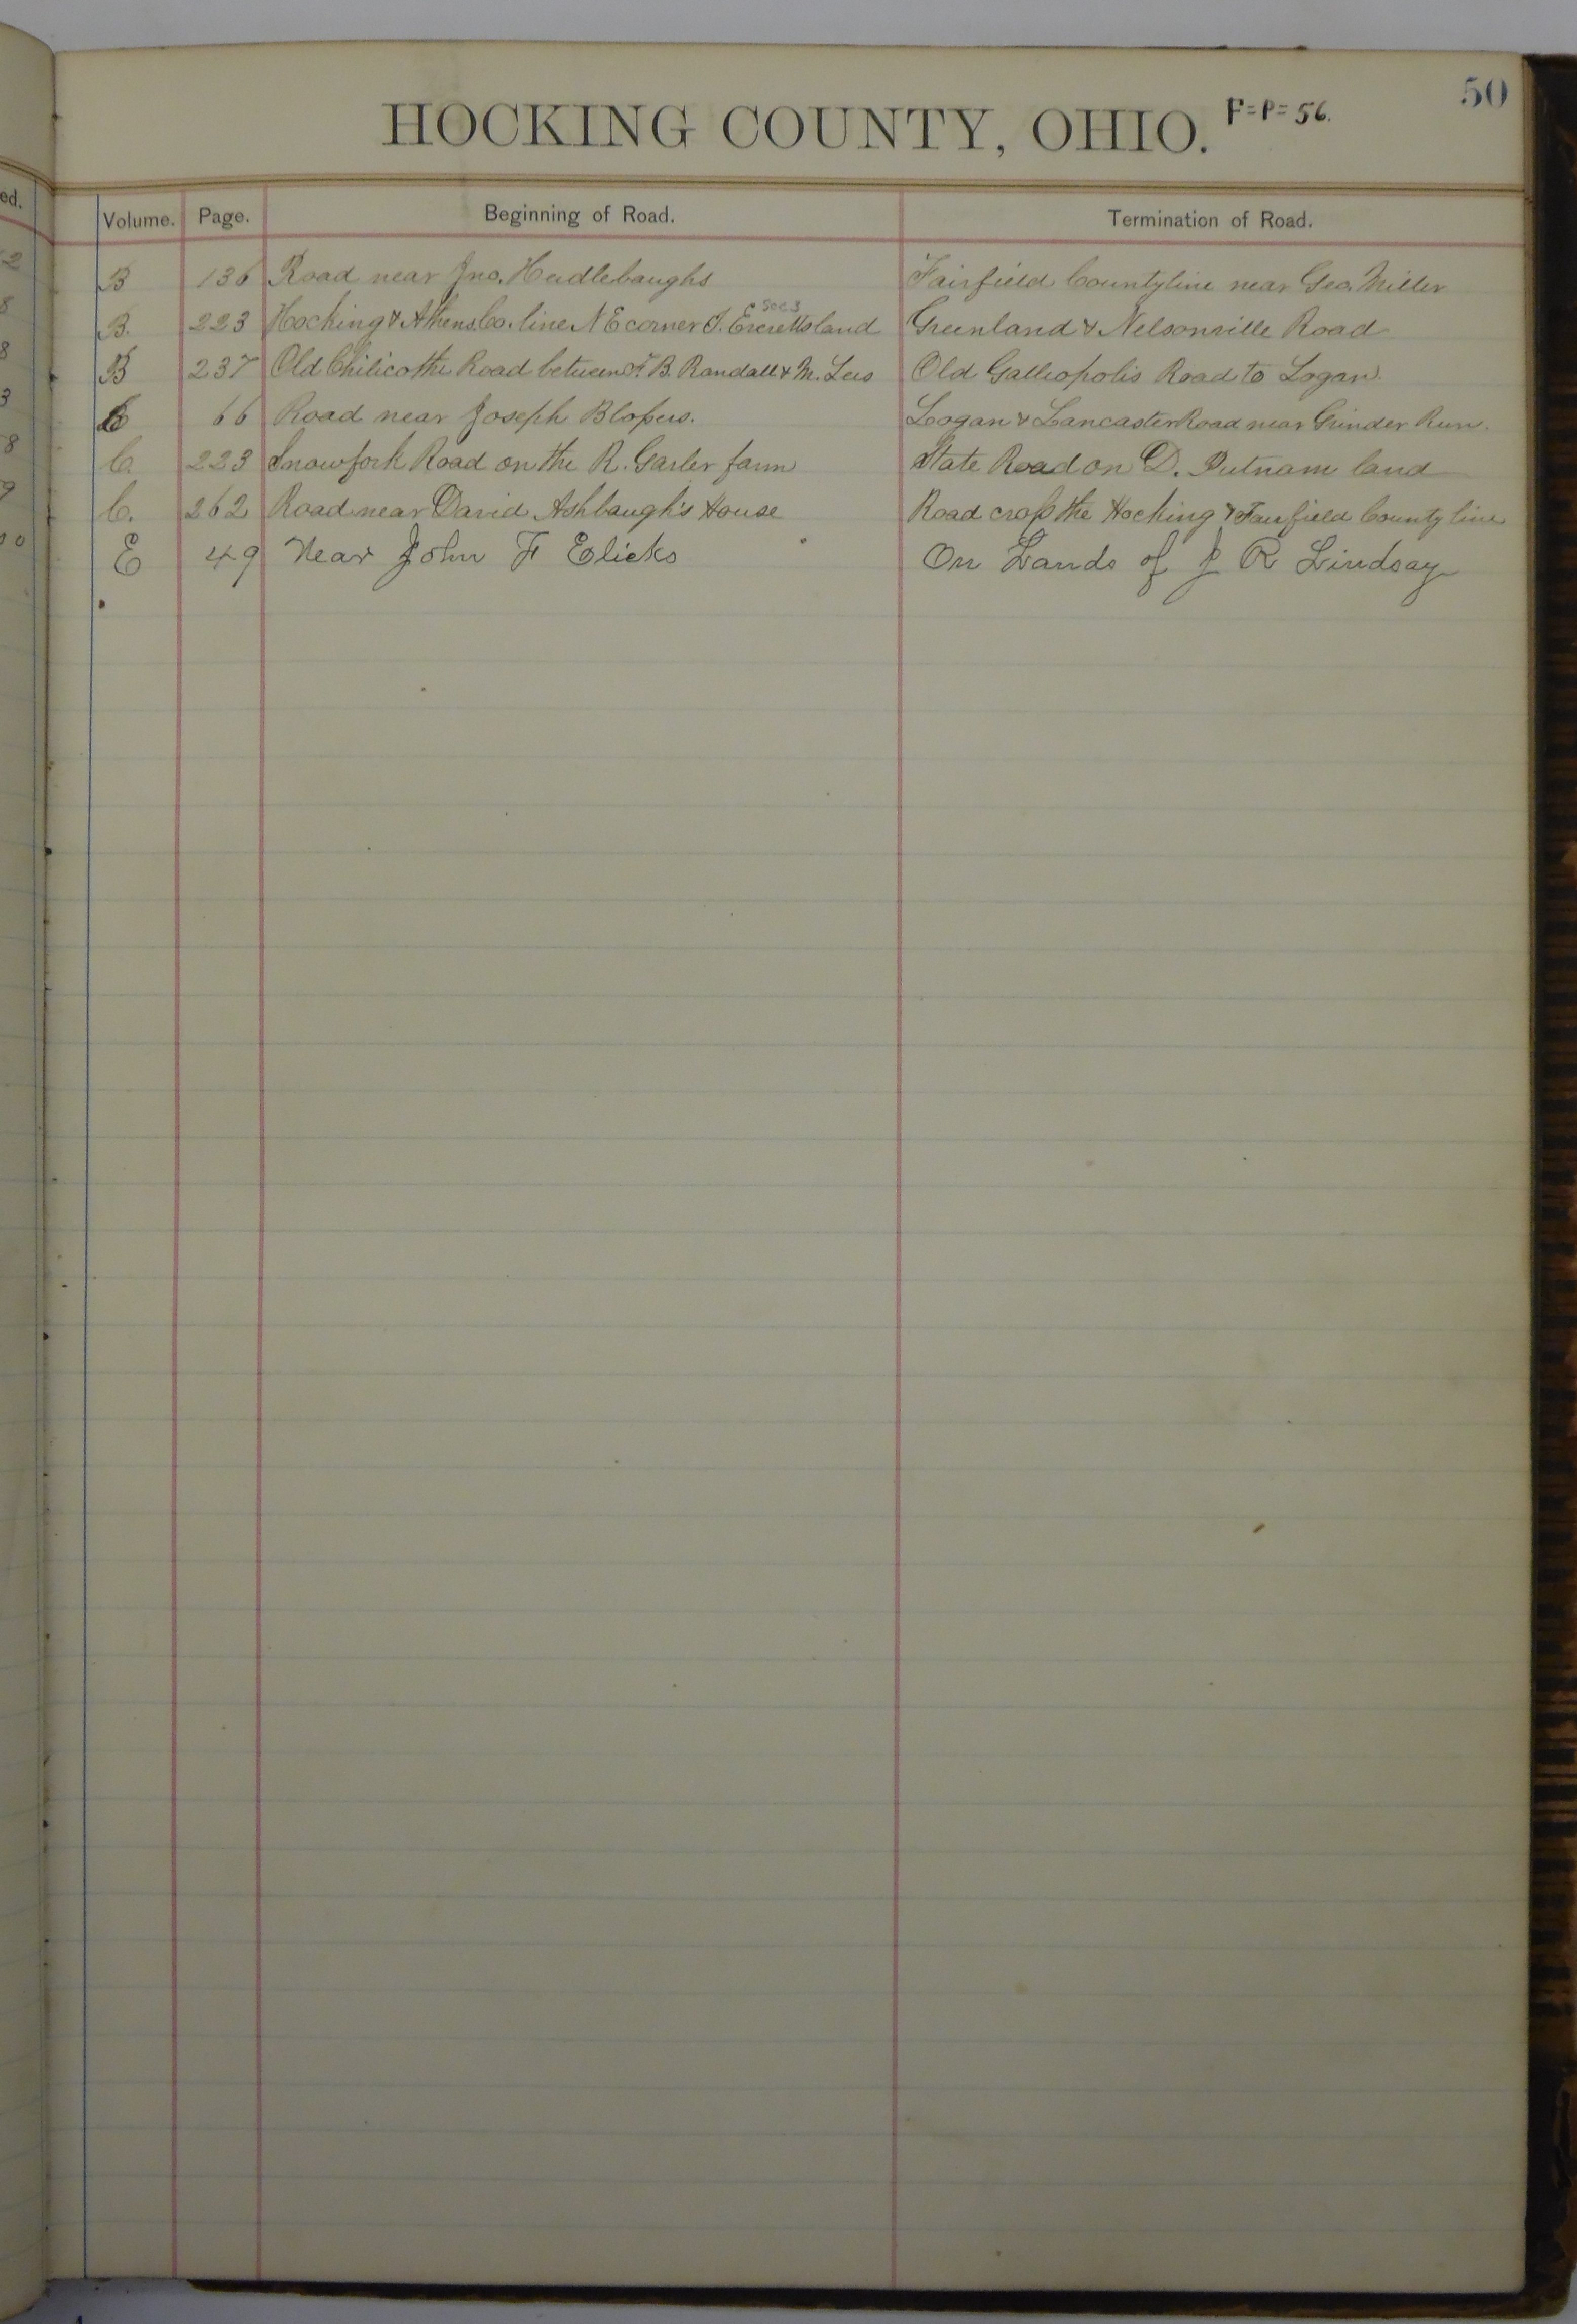 50
HOCKING COUNTY, OHIO. F=P=56.
ed.
Volume. Page. Beginning of Road. Termination of Road.
B 136 Road near Jno. Heidlebaughs Fairfield County line near Geo. Miller
Sec 3
B. 223 Hocking & Athens Co. line N E corner J. Everetts land Greenland & Nelsonville Road
B 237 Old Chilicothe Road between B. Randall & M. Lees Old Galliopolis Road to Logan.
66 Road near Joseph Blosers. Logan & Lancaster Road near Grinder Run.
C. 223 Snowfork Road on the R. Garler farm State Road on D. Putnam land
C. 262 Road near David Ashbaugh's House Road cross the Hocking & Fairfield County line
E 49 Near John F Elicks On Lands of J R Lindsay